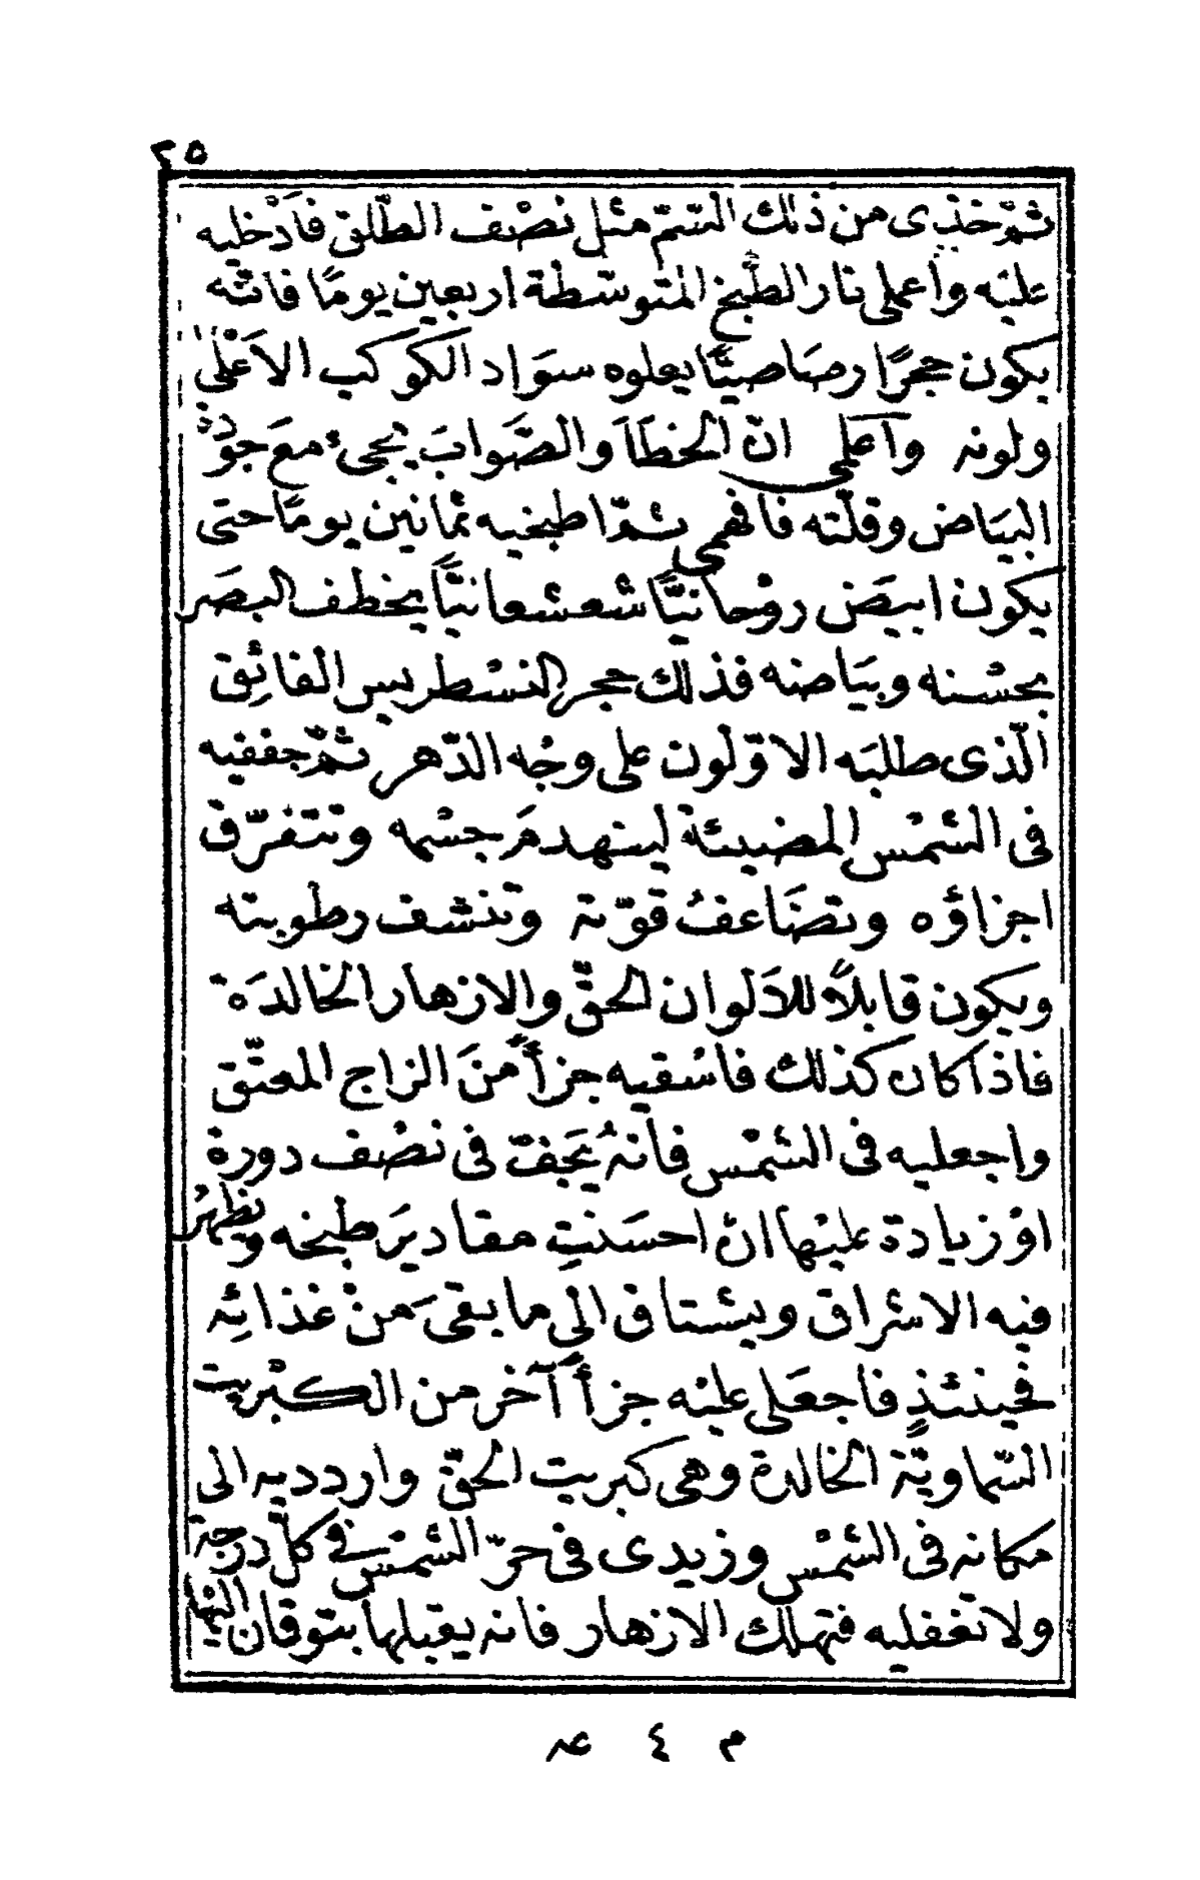 ٢٥
ثمّ خذى من ذلك السّمّ مثل نصْف الطّلق فأدْخليه
عليْه وأعملى نار الطّبخ المتوسّطة اربعين يومًا فانّه
يكون حجرًا رصَاصيًّا يعلوه سوَاد الكوكب الاَعْلىٰ
ولونه وأعلمى انّ الخطَاَ والصَّوابَ يجىء معَ جوْدة
البيَاض وقلّته فافهمى ثمّ اطبخيه ثمانين يومًا حتى
يكون ابيَض روْحانيًّا شعشعانيًّا يخطف البصَر
بحسْنه وبيَاضه فذلك حجر النسْطريس الفائِق
الّذى طلبَه الاوّلون على وجْه الدّهر ثمّ جففيه
فى الشمْس المضيئة لينهدمَ جسْمه وتتفرّق
اجزاؤه وتضَاعفُ قوّته وتنشف رطوبته
ويكون قابلاً للاَلوان الحقّ والازهار الخالدَة
فاذا كان كذلك فاسْقيه جزأً منَ الزاج المعتّق
واجعليه فى الشمْس فانهُ يَجفّ فى نصْف دورة
اوْ زيادة عليْها ان احسَنتِ مقاديرَ طبخه ويظهرُ
فيه الاشراق ويشتاق الى ما بقىَ منْ غذائِه
فحينئذٍ فاجعَلى عليْه جزأً آخر من الكبْريت
السّماويّة الخالدة وهى كبريت الحقّ وارد ديه الى
مكانه فى الشمْس وزيدى فى حرّ الشمْس فى كلّ درجة
ولا تغفليه فتهلك الازهار فانه يقبلها بتوقان النها
م ٤ عه